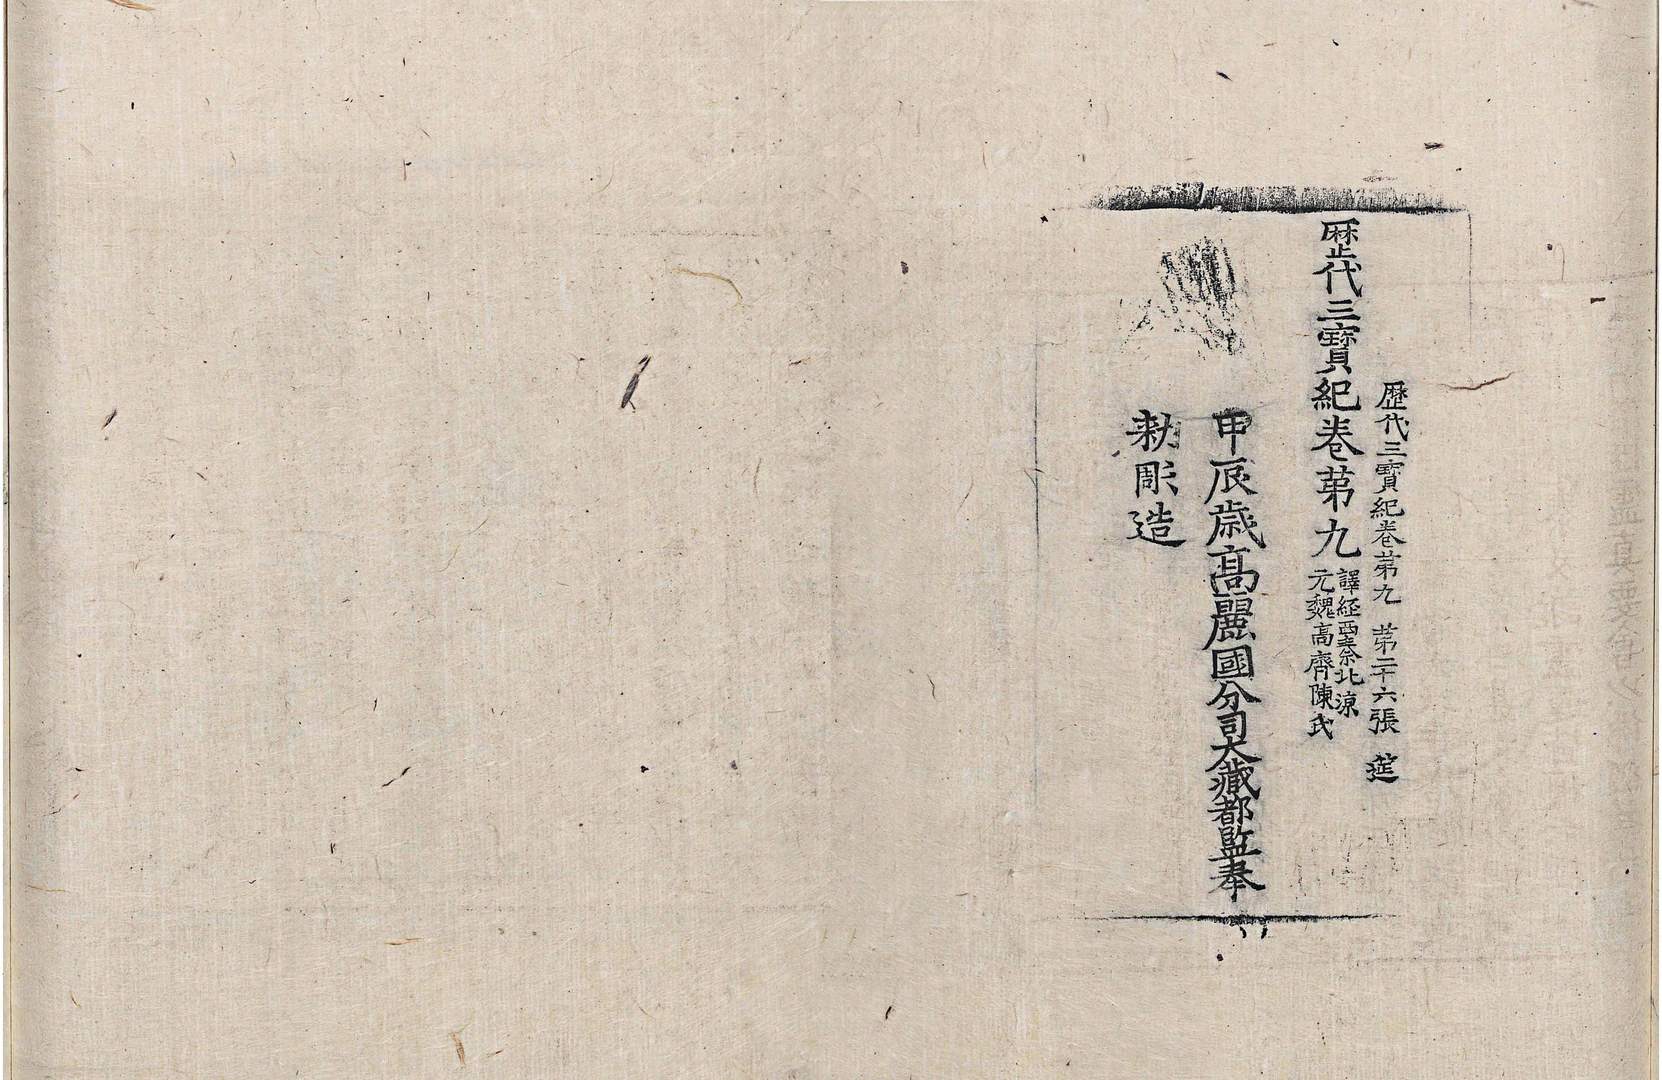 歷代三寶紀卷苐九　苐二十六張　莚
歷代三寶紀卷苐九
譯經西秦北涼
元魏高齊陳氏
甲辰歲高麗國分司大藏都監奉
勑彫造